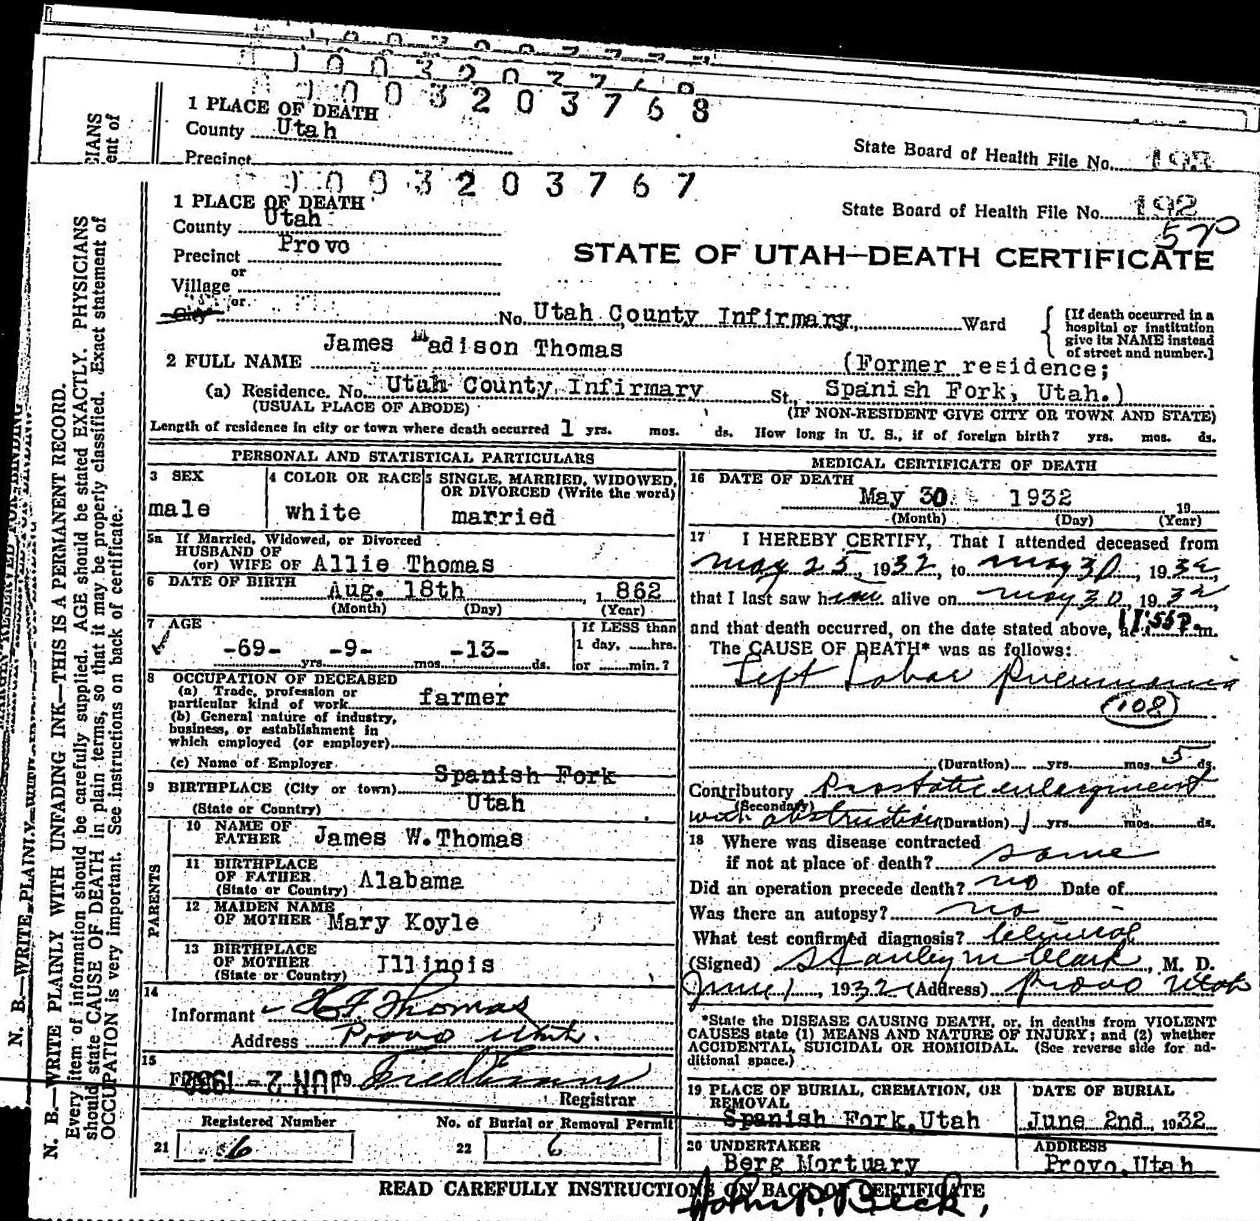 0 0 3 2 0 3 7 6 8
1 PLACE OF DEATH
County Utah
State Board of Health File No. 193
Precinct
0 0 3 2 0 3 7 6 7
1 PLACE OF DEATH
County Utah
State Board of Health File No. 192
Precinct Provo
STATE OF UTAH—DEATH CERTIFICATE
or
Village
or
City
No. Utah County Infirmary, Ward
[If death occurred in a hospital or institution give its NAME instead of street and number.]
2 FULL NAME James Madison Thomas
(Former residence;
(a) Residence. No. Utah County Infirmary St., Spanish Fork, Utah.)
(USUAL PLACE OF ABODE) (IF NON-RESIDENT GIVE CITY OR TOWN AND STATE)
Length of residence in city or town where death occurred 1 yrs. mos. ds. How long in U. S., if of foreign birth? yrs. mos. ds.
PERSONAL AND STATISTICAL PARTICULARS
3 SEX
male
4 COLOR OR RACE
white
5 SINGLE, MARRIED, WIDOWED, OR DIVORCED (Write the word)
married
5a If Married, Widowed, or Divorced
HUSBAND OF
(or) WIFE OF Allie Thomas
6 DATE OF BIRTH Aug. 18th, 1 862
(Month) (Day) (Year)
7 AGE
-69- yrs. -9- mos. -13- ds.
If LESS than 1 day, hrs. or min.?
8 OCCUPATION OF DECEASED
(a) Trade, profession or particular kind of work farmer
(b) General nature of industry, business, or establishment in which employed (or employer)
(c) Name of Employer
9 BIRTHPLACE (City or town) Spanish Fork
(State or Country) Utah
PARENTS
10 NAME OF FATHER James W. Thomas
11 BIRTHPLACE OF FATHER (State or Country) Alabama
12 MAIDEN NAME OF MOTHER Mary Koyle
13 BIRTHPLACE OF MOTHER (State or Country) Illinois
14
Informant Thomas
Address Provo Utah.
15
JUN 2 - 1932 Fred Evans
Registrar
Registered Number No. of Burial or Removal Permit
21 56 22 6
MEDICAL CERTIFICATE OF DEATH
16 DATE OF DEATH
May 30 1932 19
(Month) (Day) (Year)
17 I HEREBY CERTIFY, That I attended deceased from
May 25, 1932, to May 30, 1932,
that I last saw him alive on May 30, 1932,
and that death occurred, on the date stated above, at 11:55P.m.
The CAUSE OF DEATH* was as follows:
Left Lobar Pneumonia
108
(Duration) yrs. mos. 5 ds.
Contributory Prostatic enlargment
(Secondary)
with obstruction (Duration) 1 yrs. mos. ds.
18 Where was disease contracted
if not at place of death? same
Did an operation precede death? no Date of
Was there an autopsy? no
What test confirmed diagnosis? Clinical
(Signed) Stanley M Clark, M. D.
June 1, 1932 (Address) Provo Utah
*State the DISEASE CAUSING DEATH, or, in deaths from VIOLENT CAUSES state (1) MEANS AND NATURE OF INJURY; and (2) whether ACCIDENTAL, SUICIDAL OR HOMICIDAL. (See reverse side for additional space.)
19 PLACE OF BURIAL, CREMATION, OR REMOVAL
Spanish Fork, Utah
DATE OF BURIAL
June 2nd, 1932
20 UNDERTAKER
Berg Mortuary
ADDRESS
Provo, Utah
READ CAREFULLY INSTRUCTIONS ON BACK OF CERTIFICATE
John P. Beck,
N. B.—WRITE PLAINLY WITH UNFADING INK—THIS IS A PERMANENT RECORD.
Every item of information should be carefully supplied. AGE should be stated EXACTLY. PHYSICIANS
should state CAUSE OF DEATH in plain terms, so that it may be properly classified. Exact statement of
OCCUPATION is very important. See instructions on back of certificate.